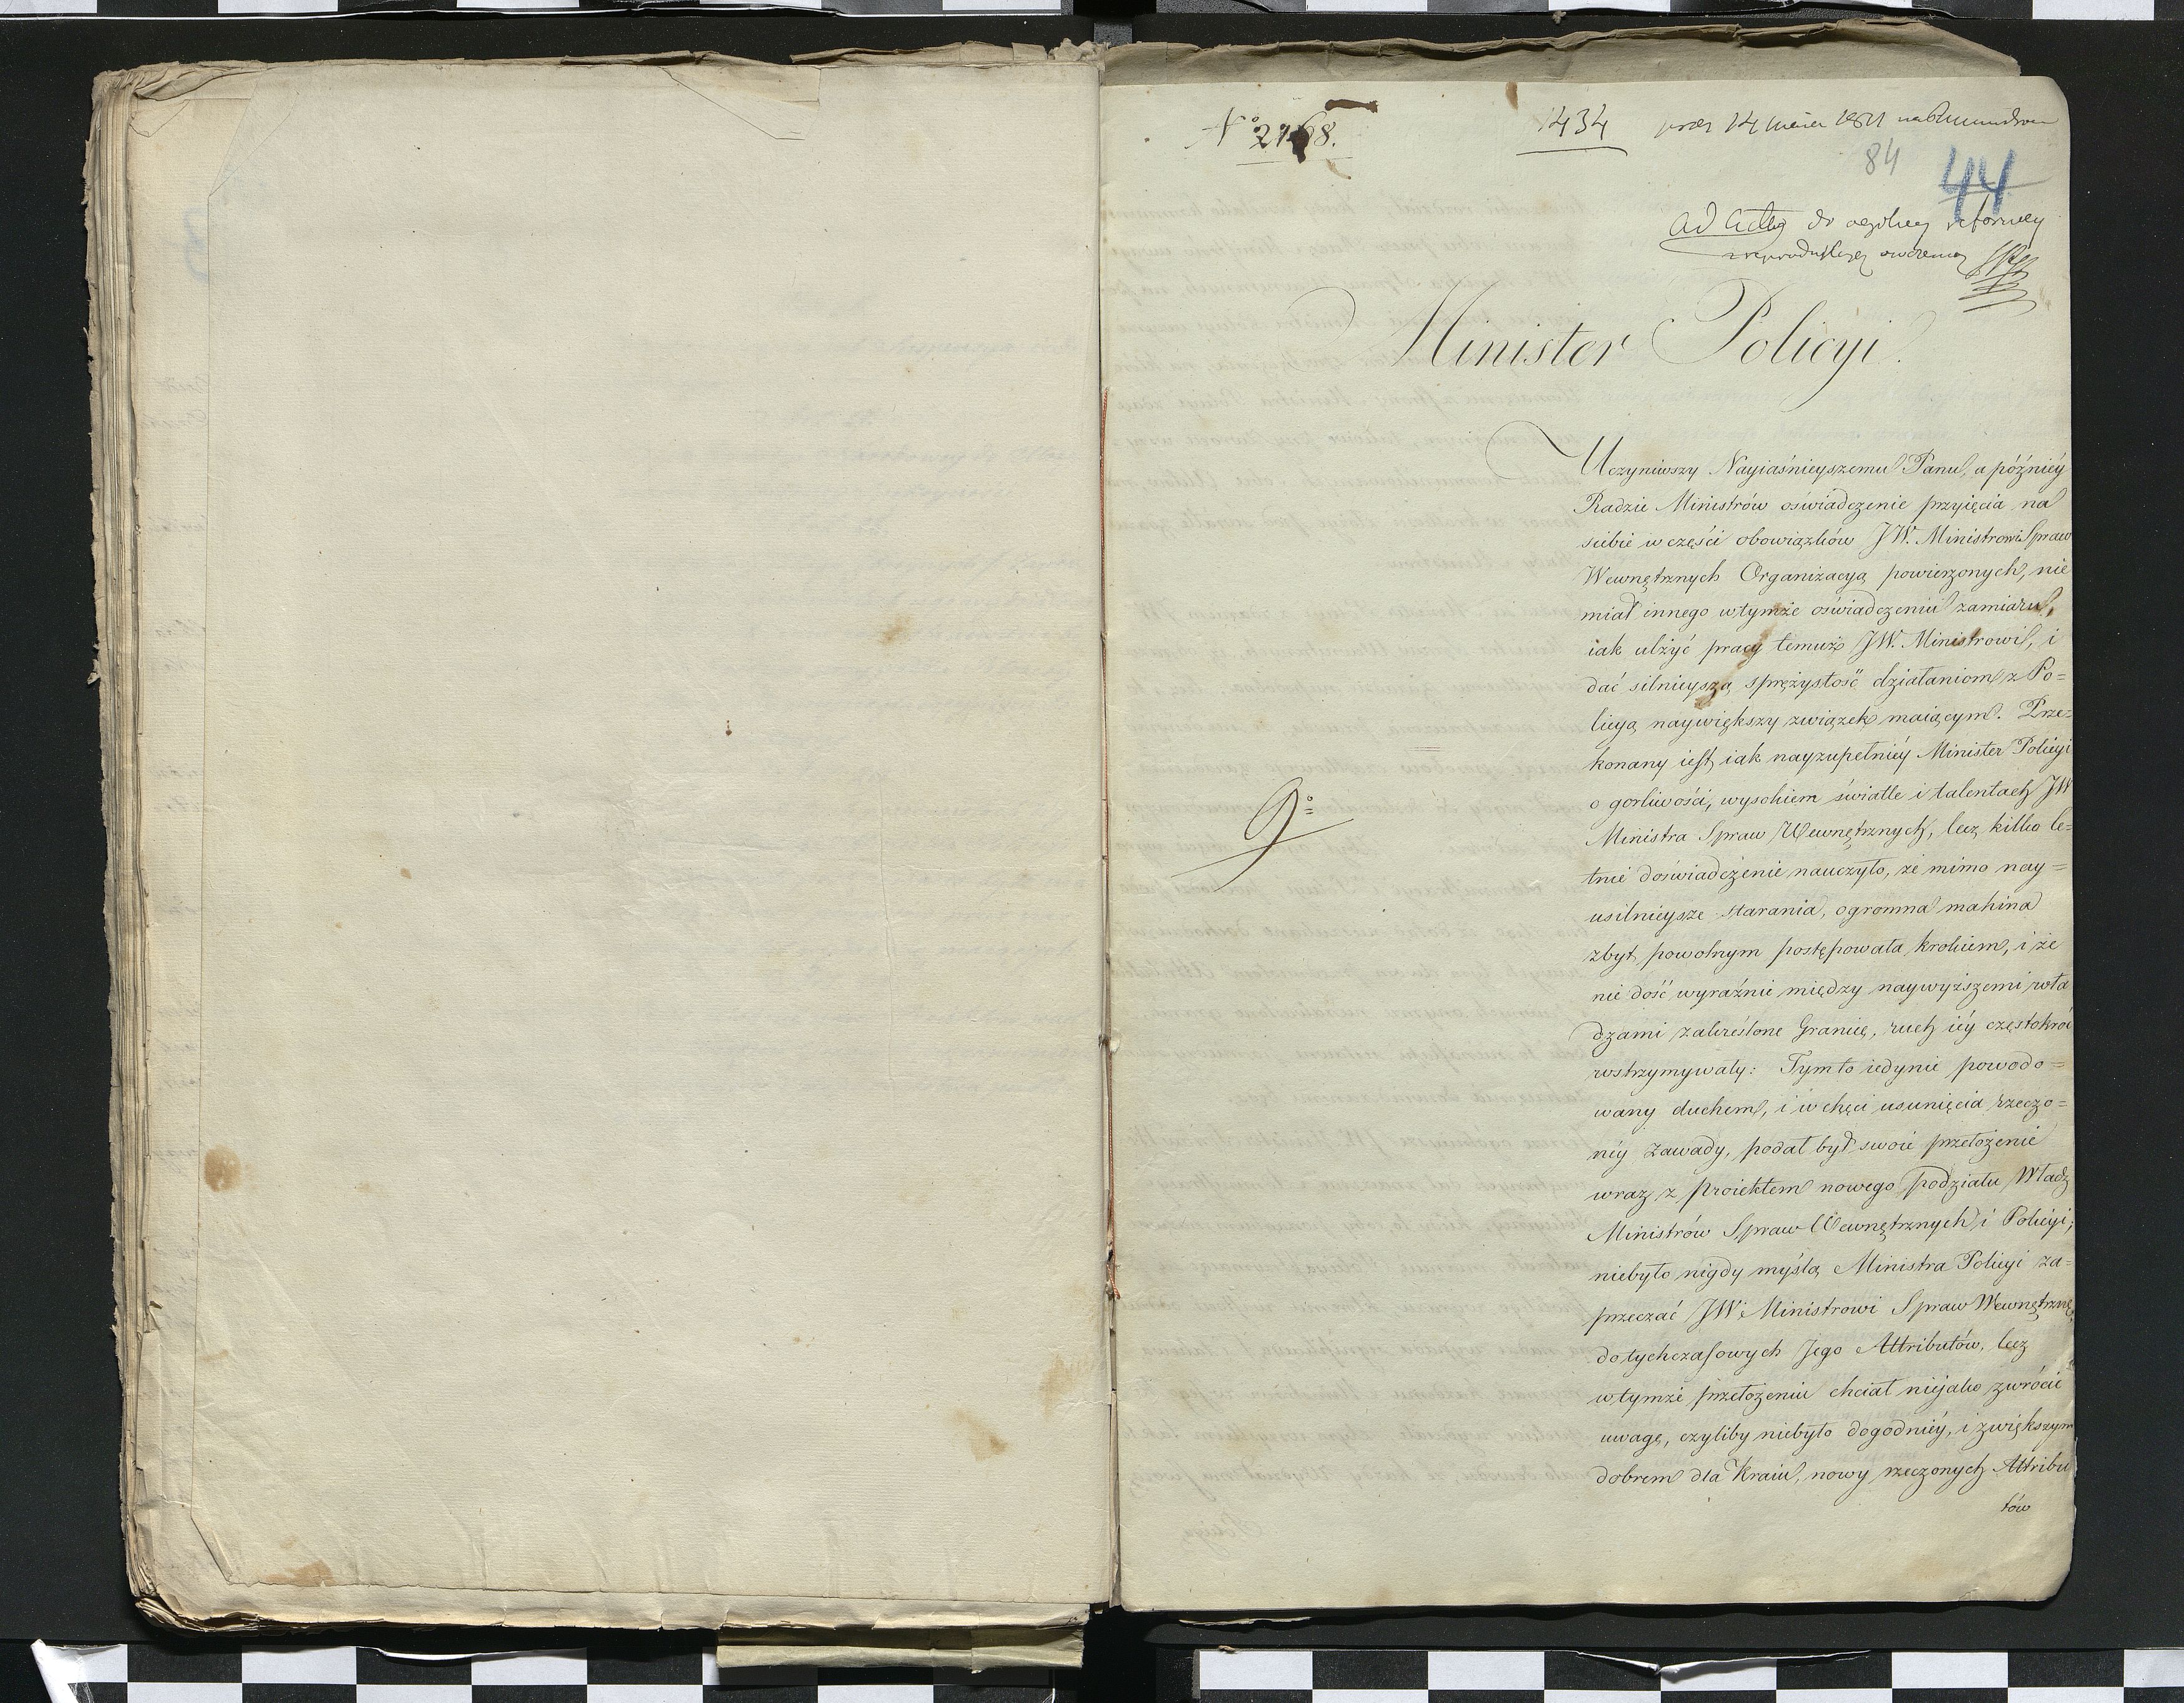 No 2768.
1434
84
44
ad acta do ogólney reformy
Minister Policyi.
Uczyniwszy Nayiaśnieyszemu Panu, a późniéy
Radzie Ministrów oświadczenie przyięcia na
siebie w części obowiązków JW. Ministrowi Spraw
Wewnętrznych Organizacyą powierzonych, nie
miał innego w tymże oświadczeniu zamiaru,
iak ulżyć pracy temuż JW. Ministrowi, i
dać silnieyszą sprężystość działaniom z Po=
licyą naywiększy związek maiącym. Prze=
konany iest iak nayzupełniéy Minister Policyi
o gorliwości, wysokiem świetle i talentach JW
Ministra Spraw Wewnętrznych, lecz kilko le=
tnie doświadczenie nauczyło, że mimo nay=
usilnieysze starania, ogromna mahina
zbyt powolnym postępowała krokiem, i że
nie dość wyraźnie między naywyższemi wła
dzami zakreślone Granice, ruch iéy częstokroć
wstrzymywały: Tym to iedynie powodo=
wany duchem, i w chęci usunięcia rzeczo=
néy zawady, podał był swoie przełożenie
wraz z proiektem nowego podziału Władz
Ministrów Spraw Wewnętrznych i Policyi;
niebyło nigdy myślą Ministra Policyi za=
przeczać JW. Ministrowi Spraw Wewnętrznę.
dotychczasowych Jego Attributów, lecz
w tymże przełożeniu chciał niejako zwrócić
uwagę, czyliby niebyło dogodniéy, i z większym
dobrem dla Kraiu, nowy rzeczonych Attribu
tów
9o